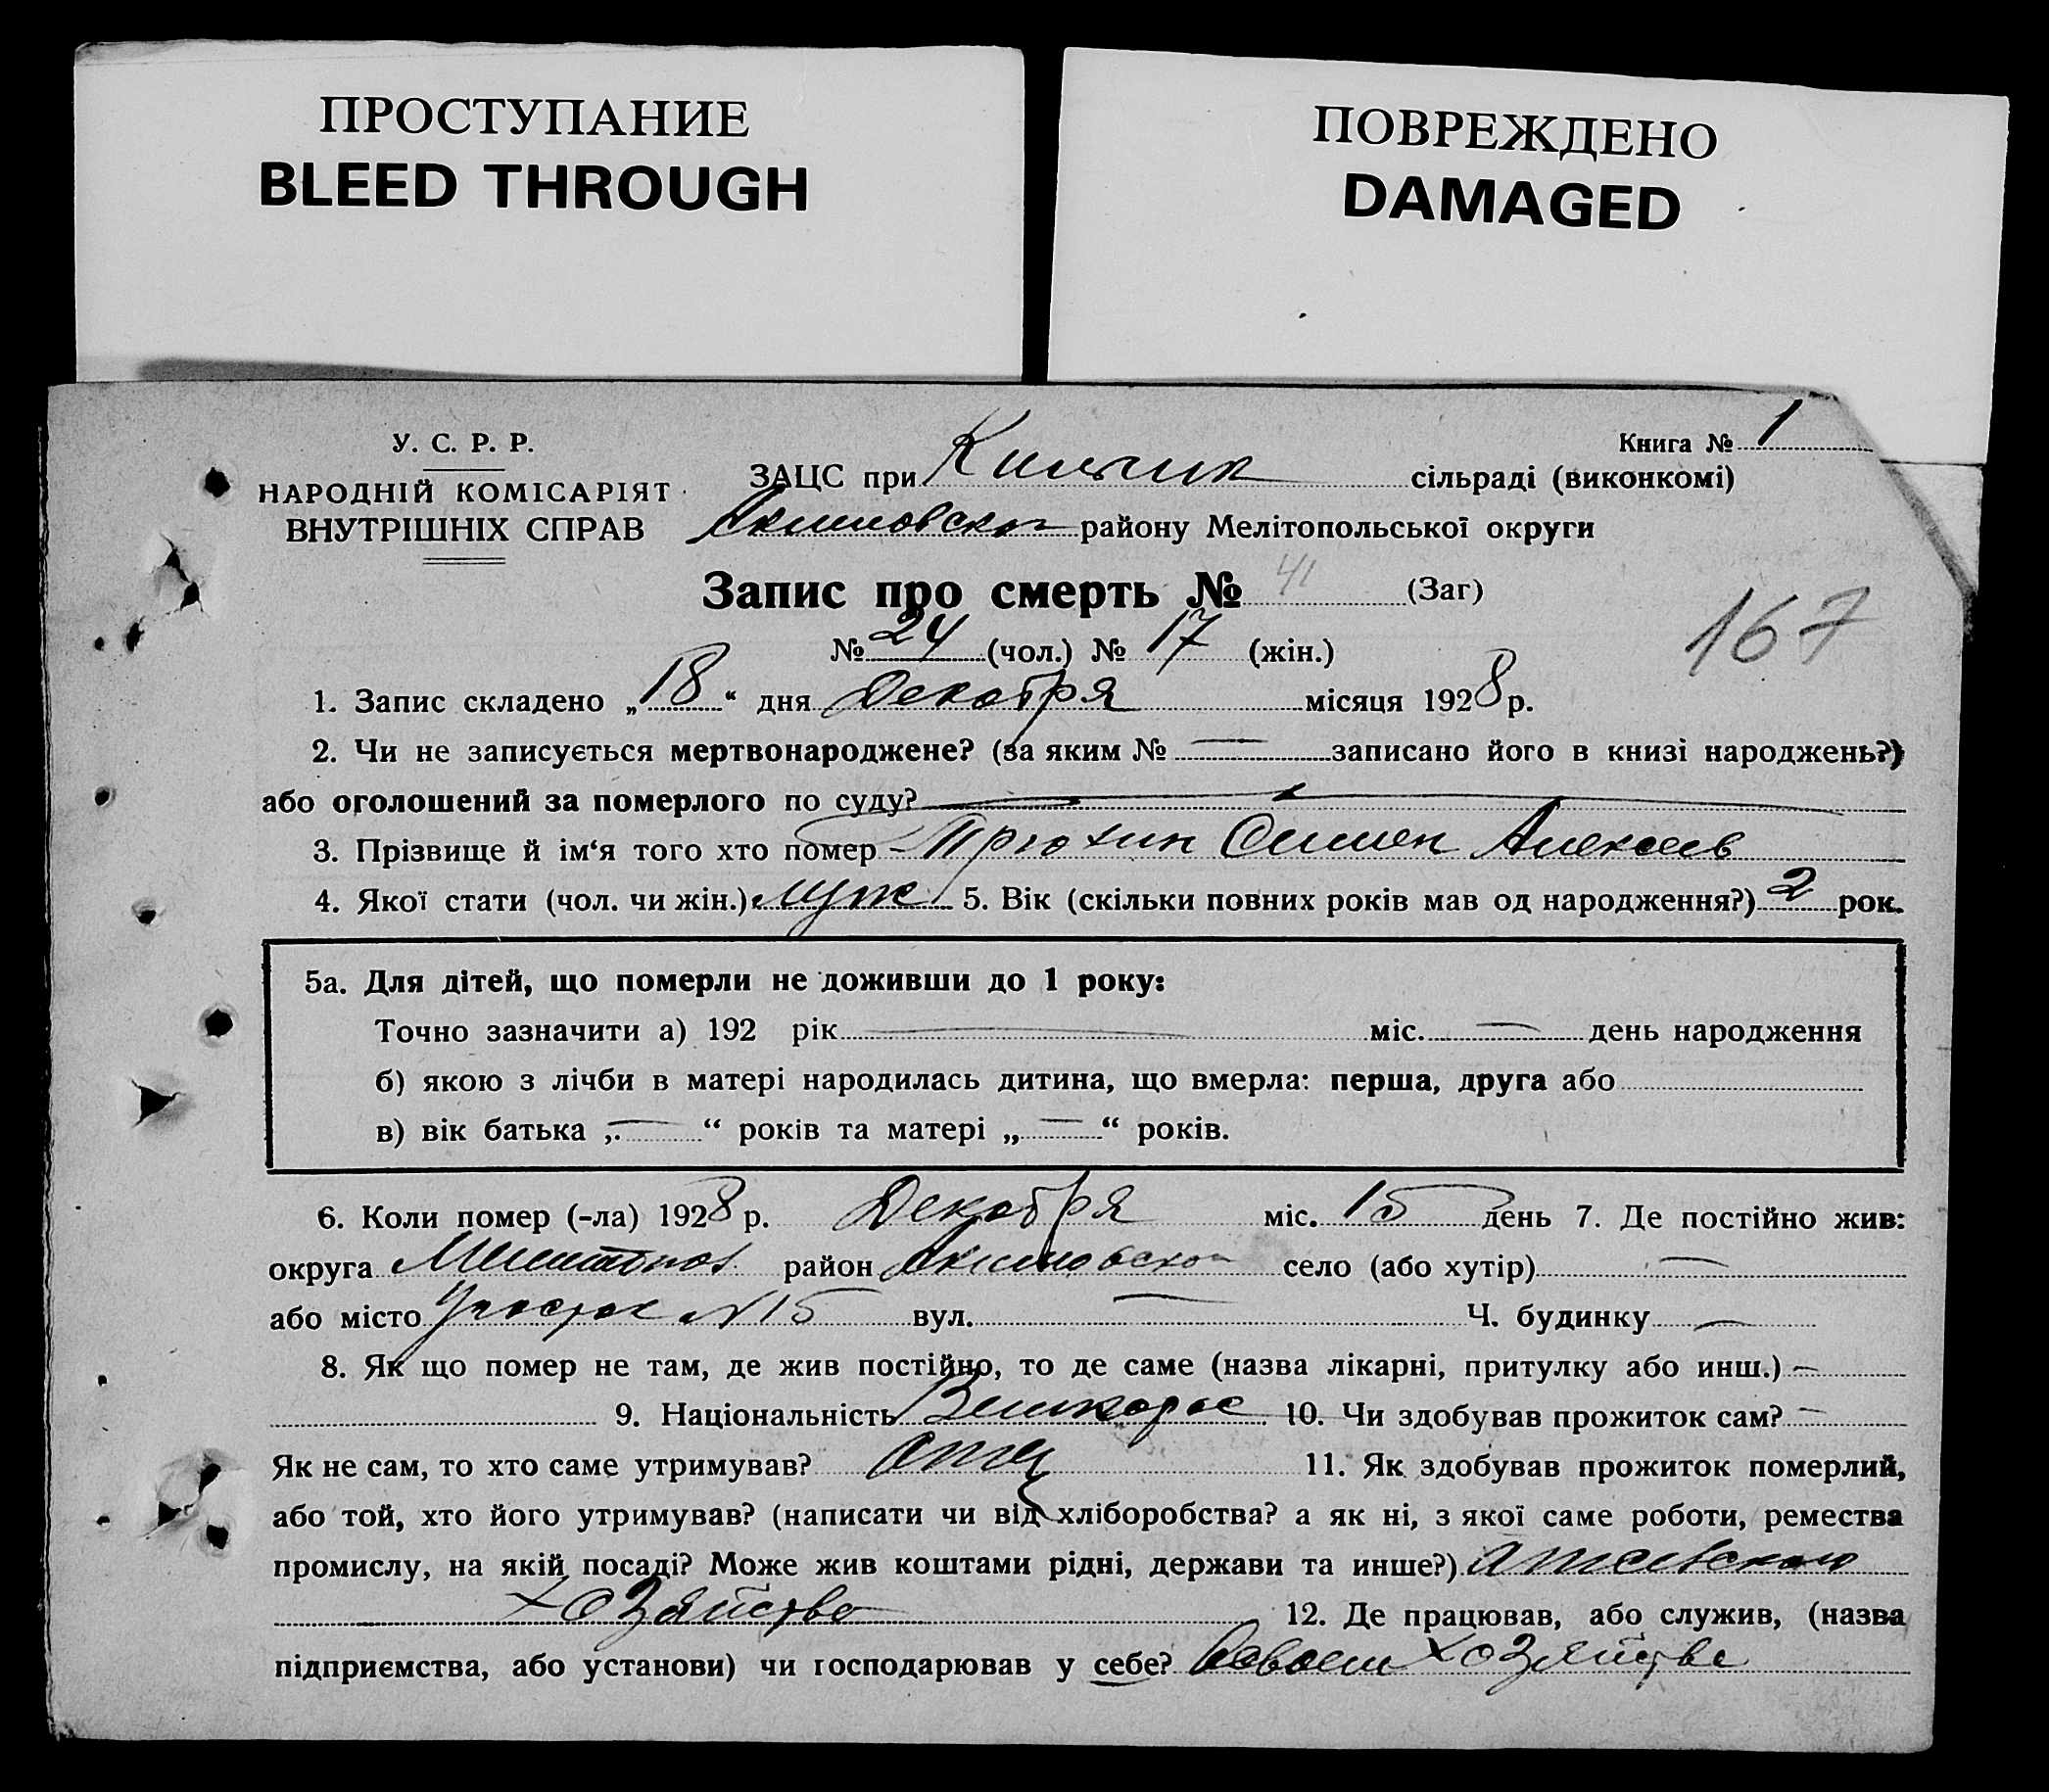 ПРОСТУПАНИЕ
BLEED THROUGH
ПОВРЕЖДЕНО
DAMAGED
У. С. Р. Р.
НАРОДНІЙ КОМІСАРІЯТ
ВНУТРІШНІХ СПРАВ
Книга № 1
ЗАЦС при сільраді (виконкомі)
Акимовско району Мелітопольської округи
Запис про смерть № 41 (Заг)
№ 24 (чол.) № 17 (жін.)
167
1. Запис складено „18“ дня Декабря місяця 1928 р.
2. Чи не записується мертвонароджене? (за яким № — записано його в книзі народжень?)
або оголошений за померлого по суду? —
3. Прізвище й ім‘я того хто помер Трюхин Симен Алексеев
4. Якої стати (чол. чи жін.) муж 5. Вік (скільки повних років мав од народження?) 2 рок.
5а. Для дітей, що померли не доживши до 1 року:
Точно зазначити а) 192 рік — міс. — день народження
б) якою з лічби в матері народилась дитина, що вмерла: перша, друга або
в) вік батька „—“ років та матері „—“ років.
6. Коли помер (-ла) 1928 р. Декабря міс. 15 день 7. Де постійно жив:
округа Мелитопол район Акимовско село (або хутір) —
або місто Участок №15 вул. — Ч. будинку —
8. Як що помер не там, де жив постійно, то де саме (назва лікарні, притулку або инш.) —
9. Національність Великорос 10. Чи здобував прожиток сам? —
Як не сам, то хто саме утримував? отец 11. Як здобував прожиток померлий,
або той, хто його утримував? (написати чи від хліборобства? а як ні, з якої саме роботи, ремества
промислу, на якій посаді? Може жив коштами рідні, держави та инше?)
хозяйство 12. Де працював, або служив, (назва
підприємства, або установи) чи господарював у себе? Всвоем хозяйстве